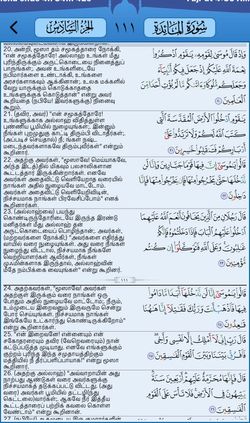 الجزء السادس ١١١ سورة المائدة
20. அன்றி, மூஸா தம் சமூகத்தாரை நோக்கி,
"என் சமூகத்தோரே! அல்லாஹ் உங்கள் மீது
புரிந்திருக்கும் அருட்கொடையை நினைத்துப்
பாருங்கள்; அவன் உங்களிடையே
நபிமார்களை உண்டாக்கி, உங்களை
அரசர்களாகவும் ஆக்கினான்; உலக மக்களில்
வேறு யாருக்கும் கொடுக்காததை
உங்களுக்குக் கொடுத்தான்" என்று அவர்
கூறியதை (நபியே! இவர்களுக்கு) நினைவு
கூறும்.
21. (தவிர, அவர்) "என் சமூகத்தோரே!
உங்களுக்காக அல்லாஹ் விதித்துள்ள
புண்ணிய பூமியில் நுழையுங்கள்; இன்னும்
நீங்கள் புறமுதுகு காட்டி திரும்பி விடாதீர்கள்;
(அப்படிச் செய்தால்) நீங்கள் நஷ்ட
மடைந்தவர்களாகவே திரும்புவீர்கள்" என்றும்
கூறினார்.
22. அதற்கு அவர்கள், "மூஸாவே! மெய்யாகவே,
அந்த இடத்தில் மிகவும் பலசாலிகளான
கூட்டத்தார் இருக்கின்றனர். எனவே
அவர்கள் அதைவிட்டு வெளியேறாத வரையில்
நாங்கள் அதில் நுழையவே மாட்டோம்.
அவர்கள் அதைவிட்டு வெளியேறிவிடின்,
நிச்சயமாக நாங்கள் பிரவேசிப்போம்" எனக்
கூறினார்கள்.
23. (அல்லாஹ்வை) பயந்து
கொண்டிருந்தோரிடையே இருந்த இரண்டு
மனிதர்கள் மீது அல்லாஹ் தன்
அருட்கொடையைப் பொழிந்தான்; அவர்கள்,
(மற்றவர்களை நோக்கி:) "அவர்களை எதிர்த்து
வாயில் வரை நுழையுங்கள். அது வரை நீங்கள்
நுழைந்து விட்டால், நிச்சயமாக நீங்களே
வெற்றியாளர்கள் ஆவீர்கள், நீங்கள்
முஃமின்களாக இருந்தால், அல்லாஹ்வின்
மீதே நம்பிக்கை வையுங்கள்" என்று கூறினர்.
١١١
24. அதற்கவர்கள், "மூஸாவே! அவர்கள்
அதற்குள் இருக்கும் வரை நாங்கள் ஒரு
போதும் அதில் நுழைய மாட்டோம். நீரும்,
உம்முடைய இறைவனும் இருவருமே சென்று
போர் செய்யுங்கள். நிச்சயமாக நாங்கள்
இங்கேயே உட்கார்ந்து கொண்டிருக்கிறோம்"
என்று கூறினார்கள்.
25. "என் இறைவனே! என்னையும் என்
சகோதரரையும் தவிர (வேறெவரையும்) நான்
கட்டுப்படுத்த முடியாது. எனவே எங்களுக்கும்
குற்றம் புரிந்த இந்த சமூகத்தாருக்கும்
மத்தியில் நீ தீர்ப்பளிப்பாயாக!" என்று மூஸா
கூறினார்.
26. (அதற்கு அல்லாஹ்) "அவ்வாறாயின் அது
நாற்பது ஆண்டுகள் வரை அவர்களுக்கு
நிச்சயமாகத் தடுக்கப்பட்டு விட்டது; (அது
வரை) அவர்கள் பூமியில் தட்டழிந்து
கெட்டலைவார்கள்; ஆகவே நீர் இத்தீய
கூட்டத்தாரைப் பற்றிக் கவலை கொள்ள
வேண்டாம்" என்று கூறினான்.
وَإِذْ قَالَ مُوسَىٰ لِقَوْمِهِ يَٰقَوْمِ ٱذْكُرُوا۟
نِعْمَةَ ٱللَّهِ عَلَيْكُمْ إِذْ جَعَلَ فِيكُمْ أَنۢبِيَآءَ
وَجَعَلَكُم مُّلُوكًا وَءَاتَىٰكُم مَّا لَمْ يُؤْتِ أَحَدًا مِّنَ
ٱلْعَٰلَمِينَ ٢٠
يَٰقَوْمِ ٱدْخُلُوا۟ ٱلْأَرْضَ ٱلْمُقَدَّسَةَ ٱلَّتِى
كَتَبَ ٱللَّهُ لَكُمْ وَلَا تَرْتَدُّوا۟ عَلَىٰٓ
أَدْبَارِكُمْ فَتَنقَلِبُوا۟ خَٰسِرِينَ ٢١
قَالُوا۟ يَٰمُوسَىٰٓ إِنَّ فِيهَا قَوْمًا جَبَّارِينَ وَإِنَّا لَن
نَّدْخُلَهَا حَتَّىٰ يَخْرُجُوا۟ مِنْهَا فَإِن يَخْرُجُوا۟ مِنْهَا فَإِنَّا
دَٰخِلُونَ ٢٢
قَالَ رَجُلَانِ مِنَ ٱلَّذِينَ يَخَافُونَ أَنْعَمَ ٱللَّهُ عَلَيْهِمَا
ٱدْخُلُوا۟ عَلَيْهِمُ ٱلْبَابَ فَإِذَا دَخَلْتُمُوهُ فَإِنَّكُمْ
غَٰلِبُونَ وَعَلَى ٱللَّهِ فَتَوَكَّلُوٓا۟ إِن كُنتُم
مُّؤْمِنِينَ ٢٣
قَالُوا۟ يَٰمُوسَىٰٓ إِنَّا لَن نَّدْخُلَهَآ أَبَدًا مَّا دَامُوا۟
فِيهَا فَٱذْهَبْ أَنتَ وَرَبُّكَ فَقَٰتِلَآ إِنَّا هَٰهُنَا
قَٰعِدُونَ ٢٤
قَالَ رَبِّ إِنِّى لَآ أَمْلِكُ إِلَّا نَفْسِى وَأَخِى
فَٱفْرُقْ بَيْنَنَا وَبَيْنَ ٱلْقَوْمِ ٱلْفَٰسِقِينَ ٢٥
قَالَ فَإِنَّهَا مُحَرَّمَةٌ عَلَيْهِمْ أَرْبَعِينَ سَنَةً
يَتِيهُونَ فِى ٱلْأَرْضِ فَلَا تَأْسَ عَلَى ٱلْقَوْمِ
ٱلْفَٰسِقِينَ ٢٦